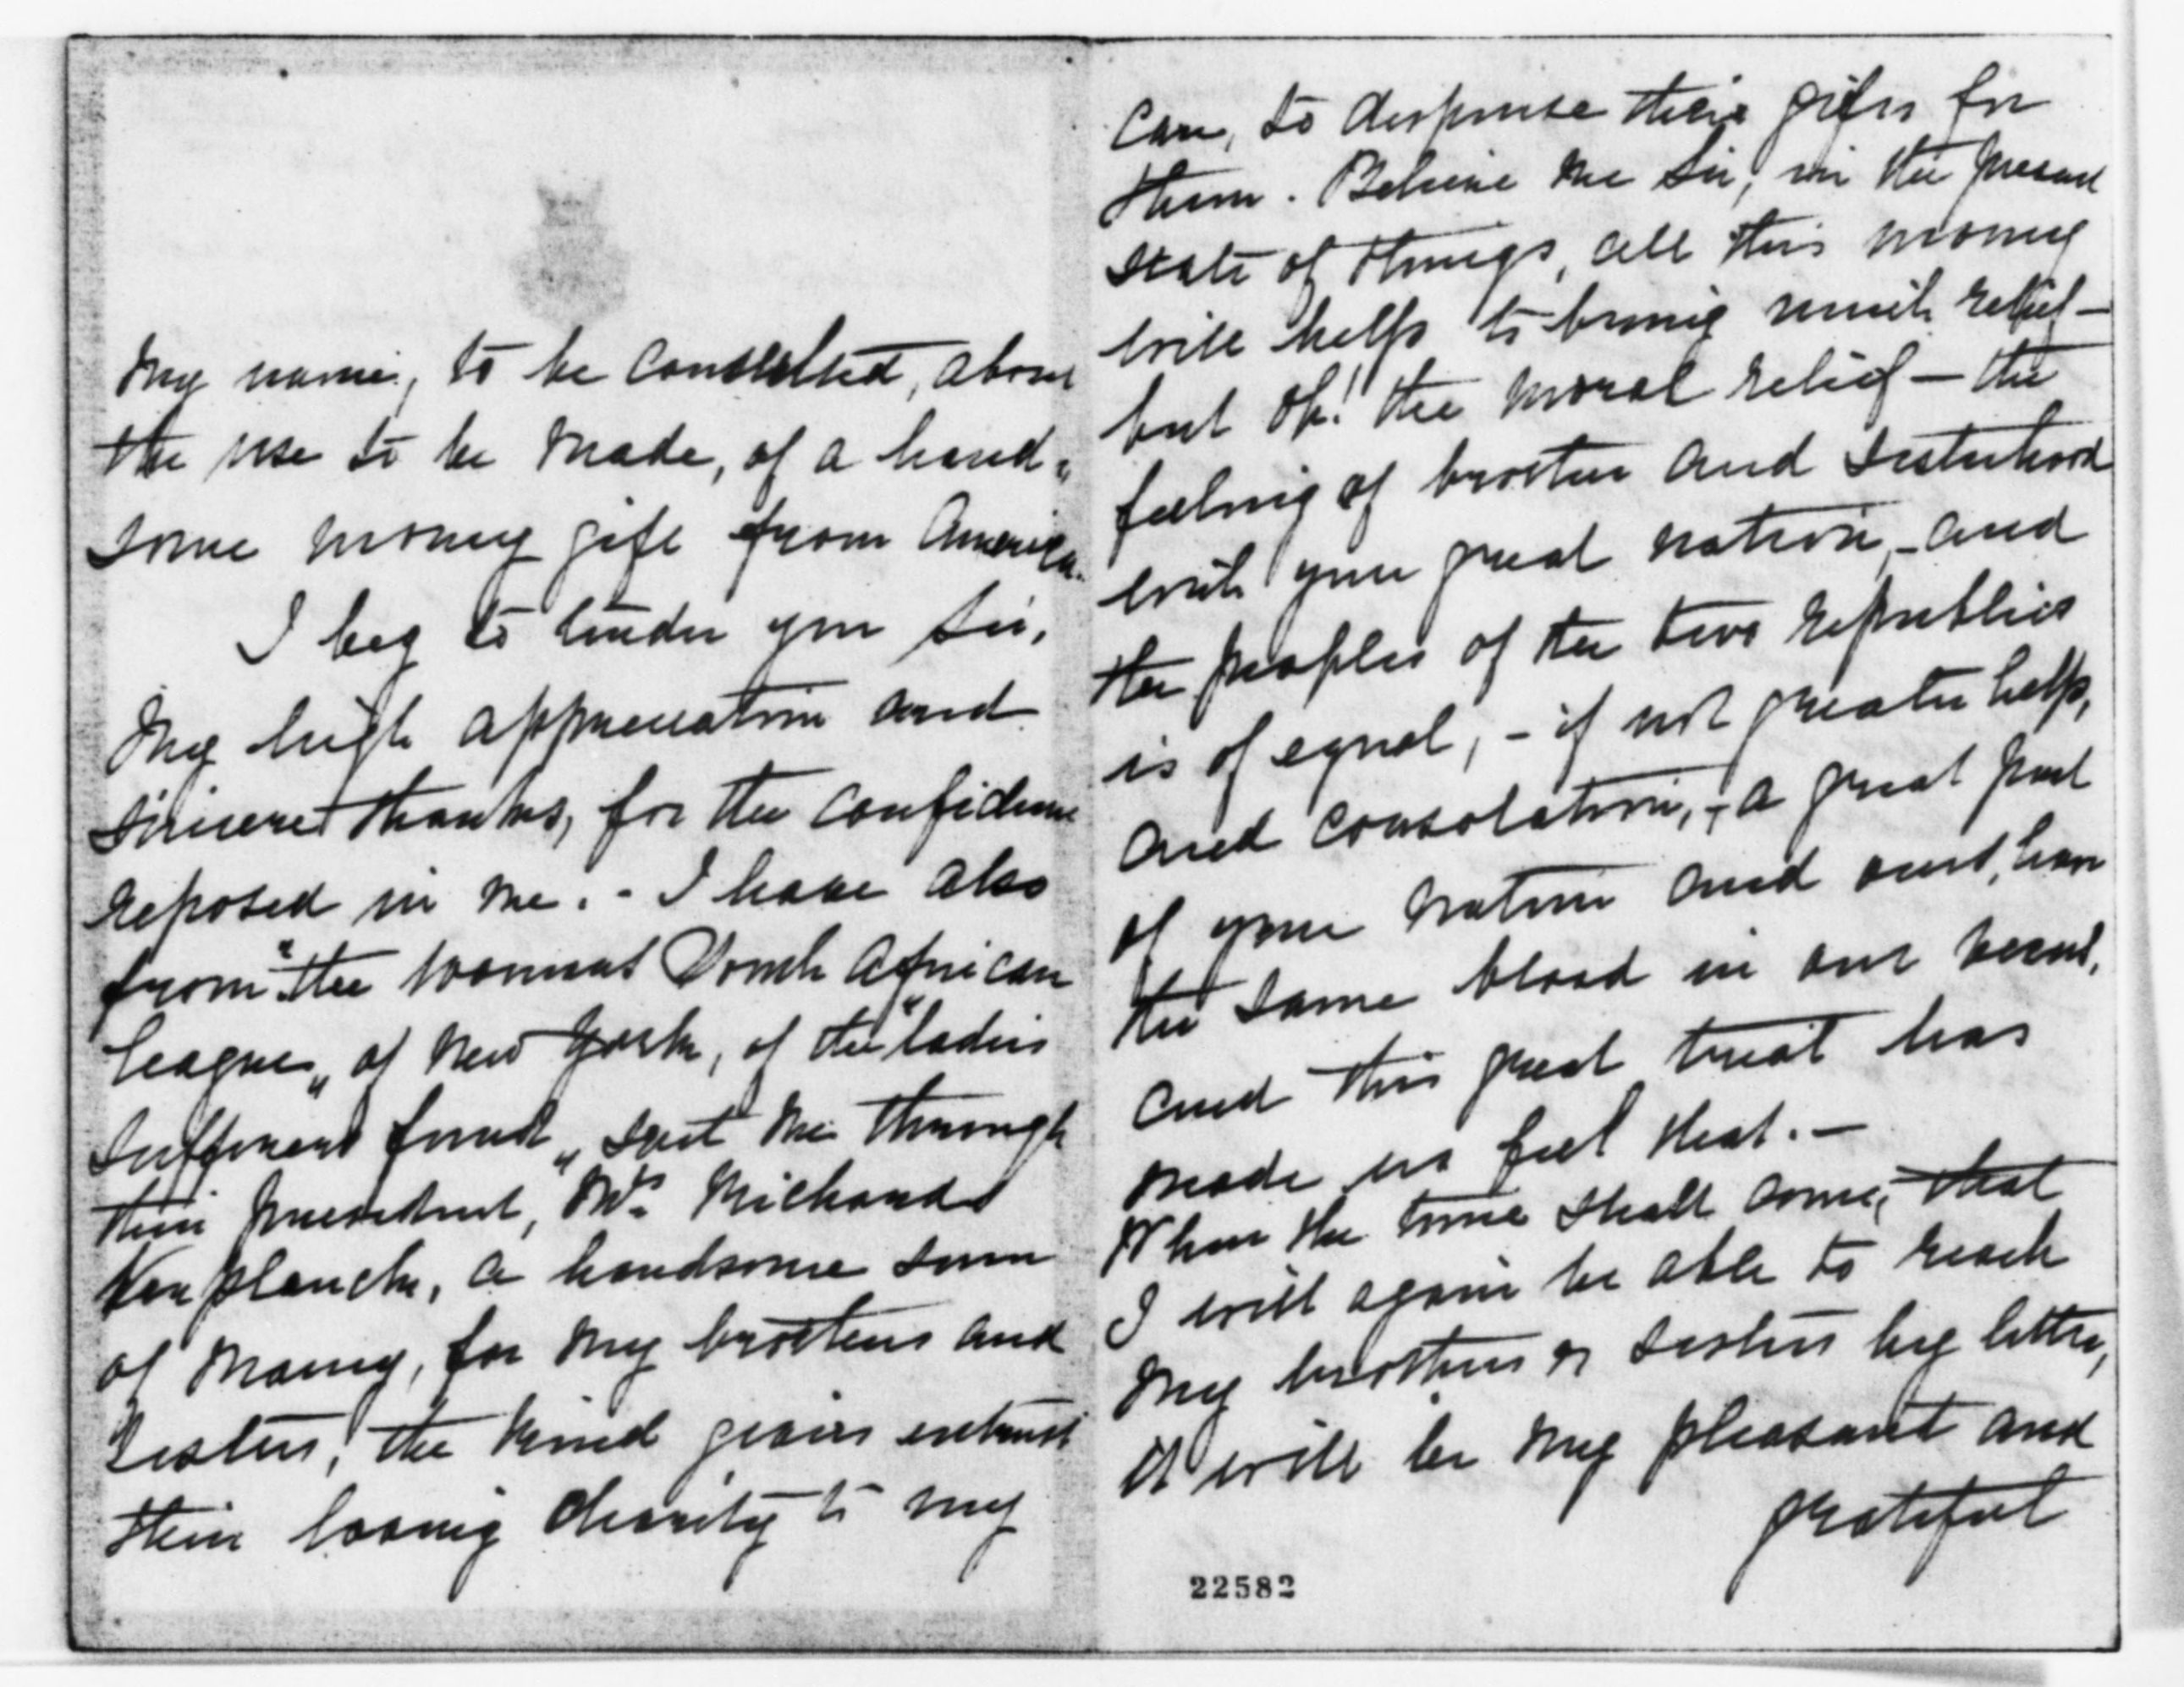 My name, to be consulted, about
the use to be made, of a hand=
some money gift from America.
I beg to tender you Sir,
My high appreciation and
sincere thanks, for the confidence
reposed in me. - I have also
from "the Womans South African
League„ of New York, of the "ladies
Sufferers fund„ sent me through
their president, Mrs
of Money, for my brothers and
Sisters, the kind givers entrust
their loving charity to my
care, to dispense their gifts for
them. Believe me Sir, in the present
state of things, all this money
will help to bring much relief –
but oh! the moral relief – the
feeling of brother and sisterhood
with your great nation, - and
the peoples of the two republics
is of equal, - if not greater help,
and consolation, - a great part
of your nation and ours, have
the same blood in our veins,
and this great trial has
made us feel that. –
When the time shall come, that
I will again be able to reach
My brothers or sisters by letter,
it will be my pleasant and
grateful
22582